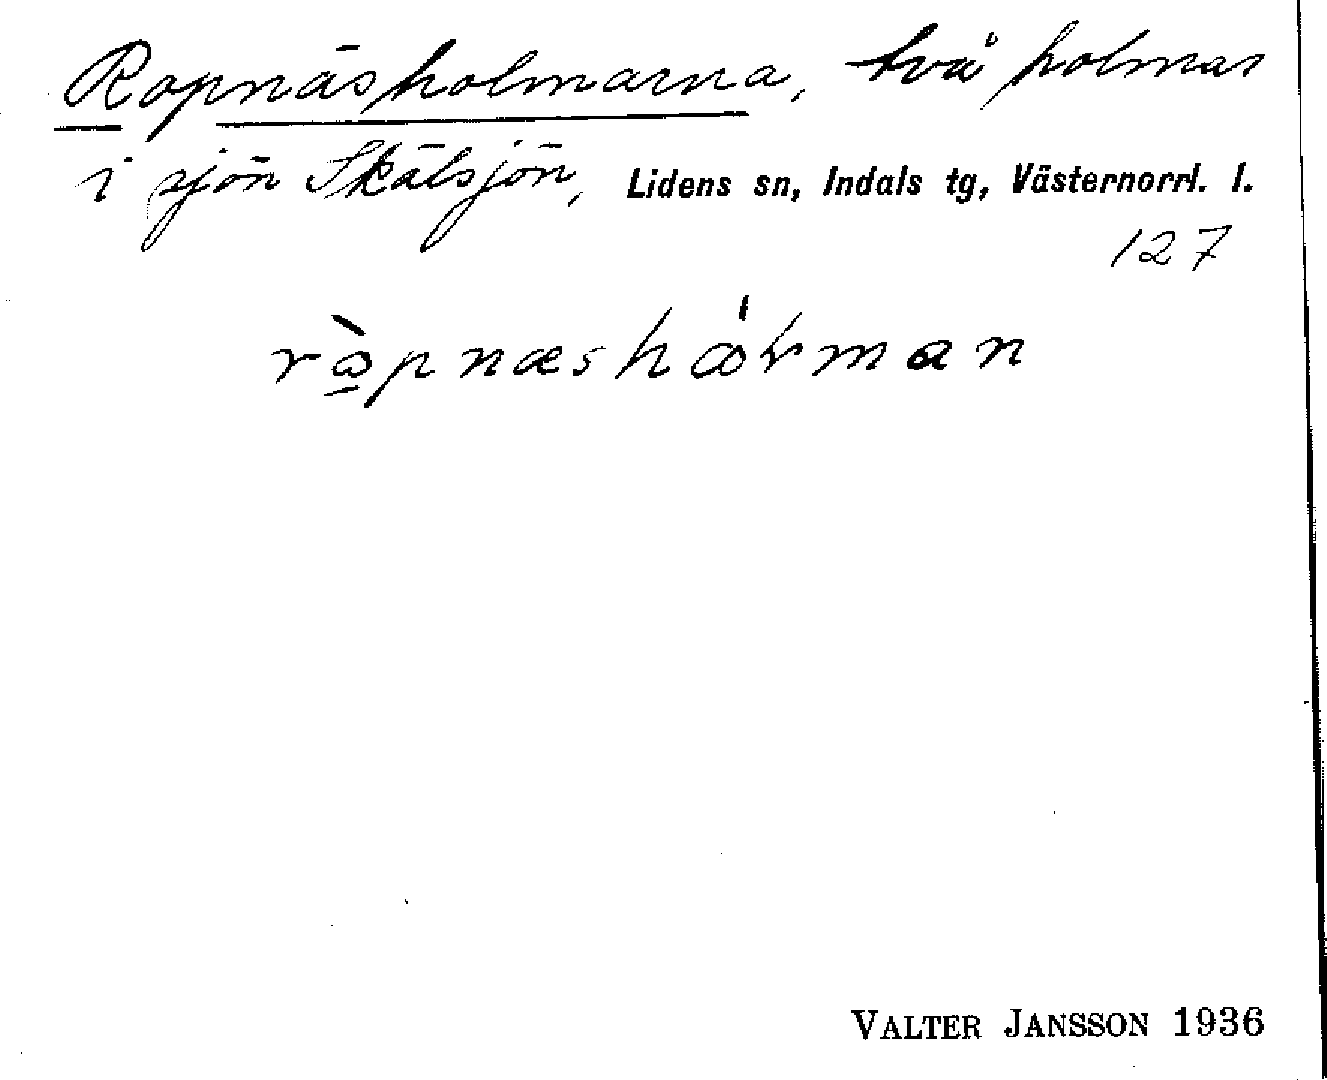 Ropnäsholmarna, två holmar
i sjön Skälsjön, Lidens sn, Indals tg, Västernorrl. l.
127
VALTER JANSSON 1936